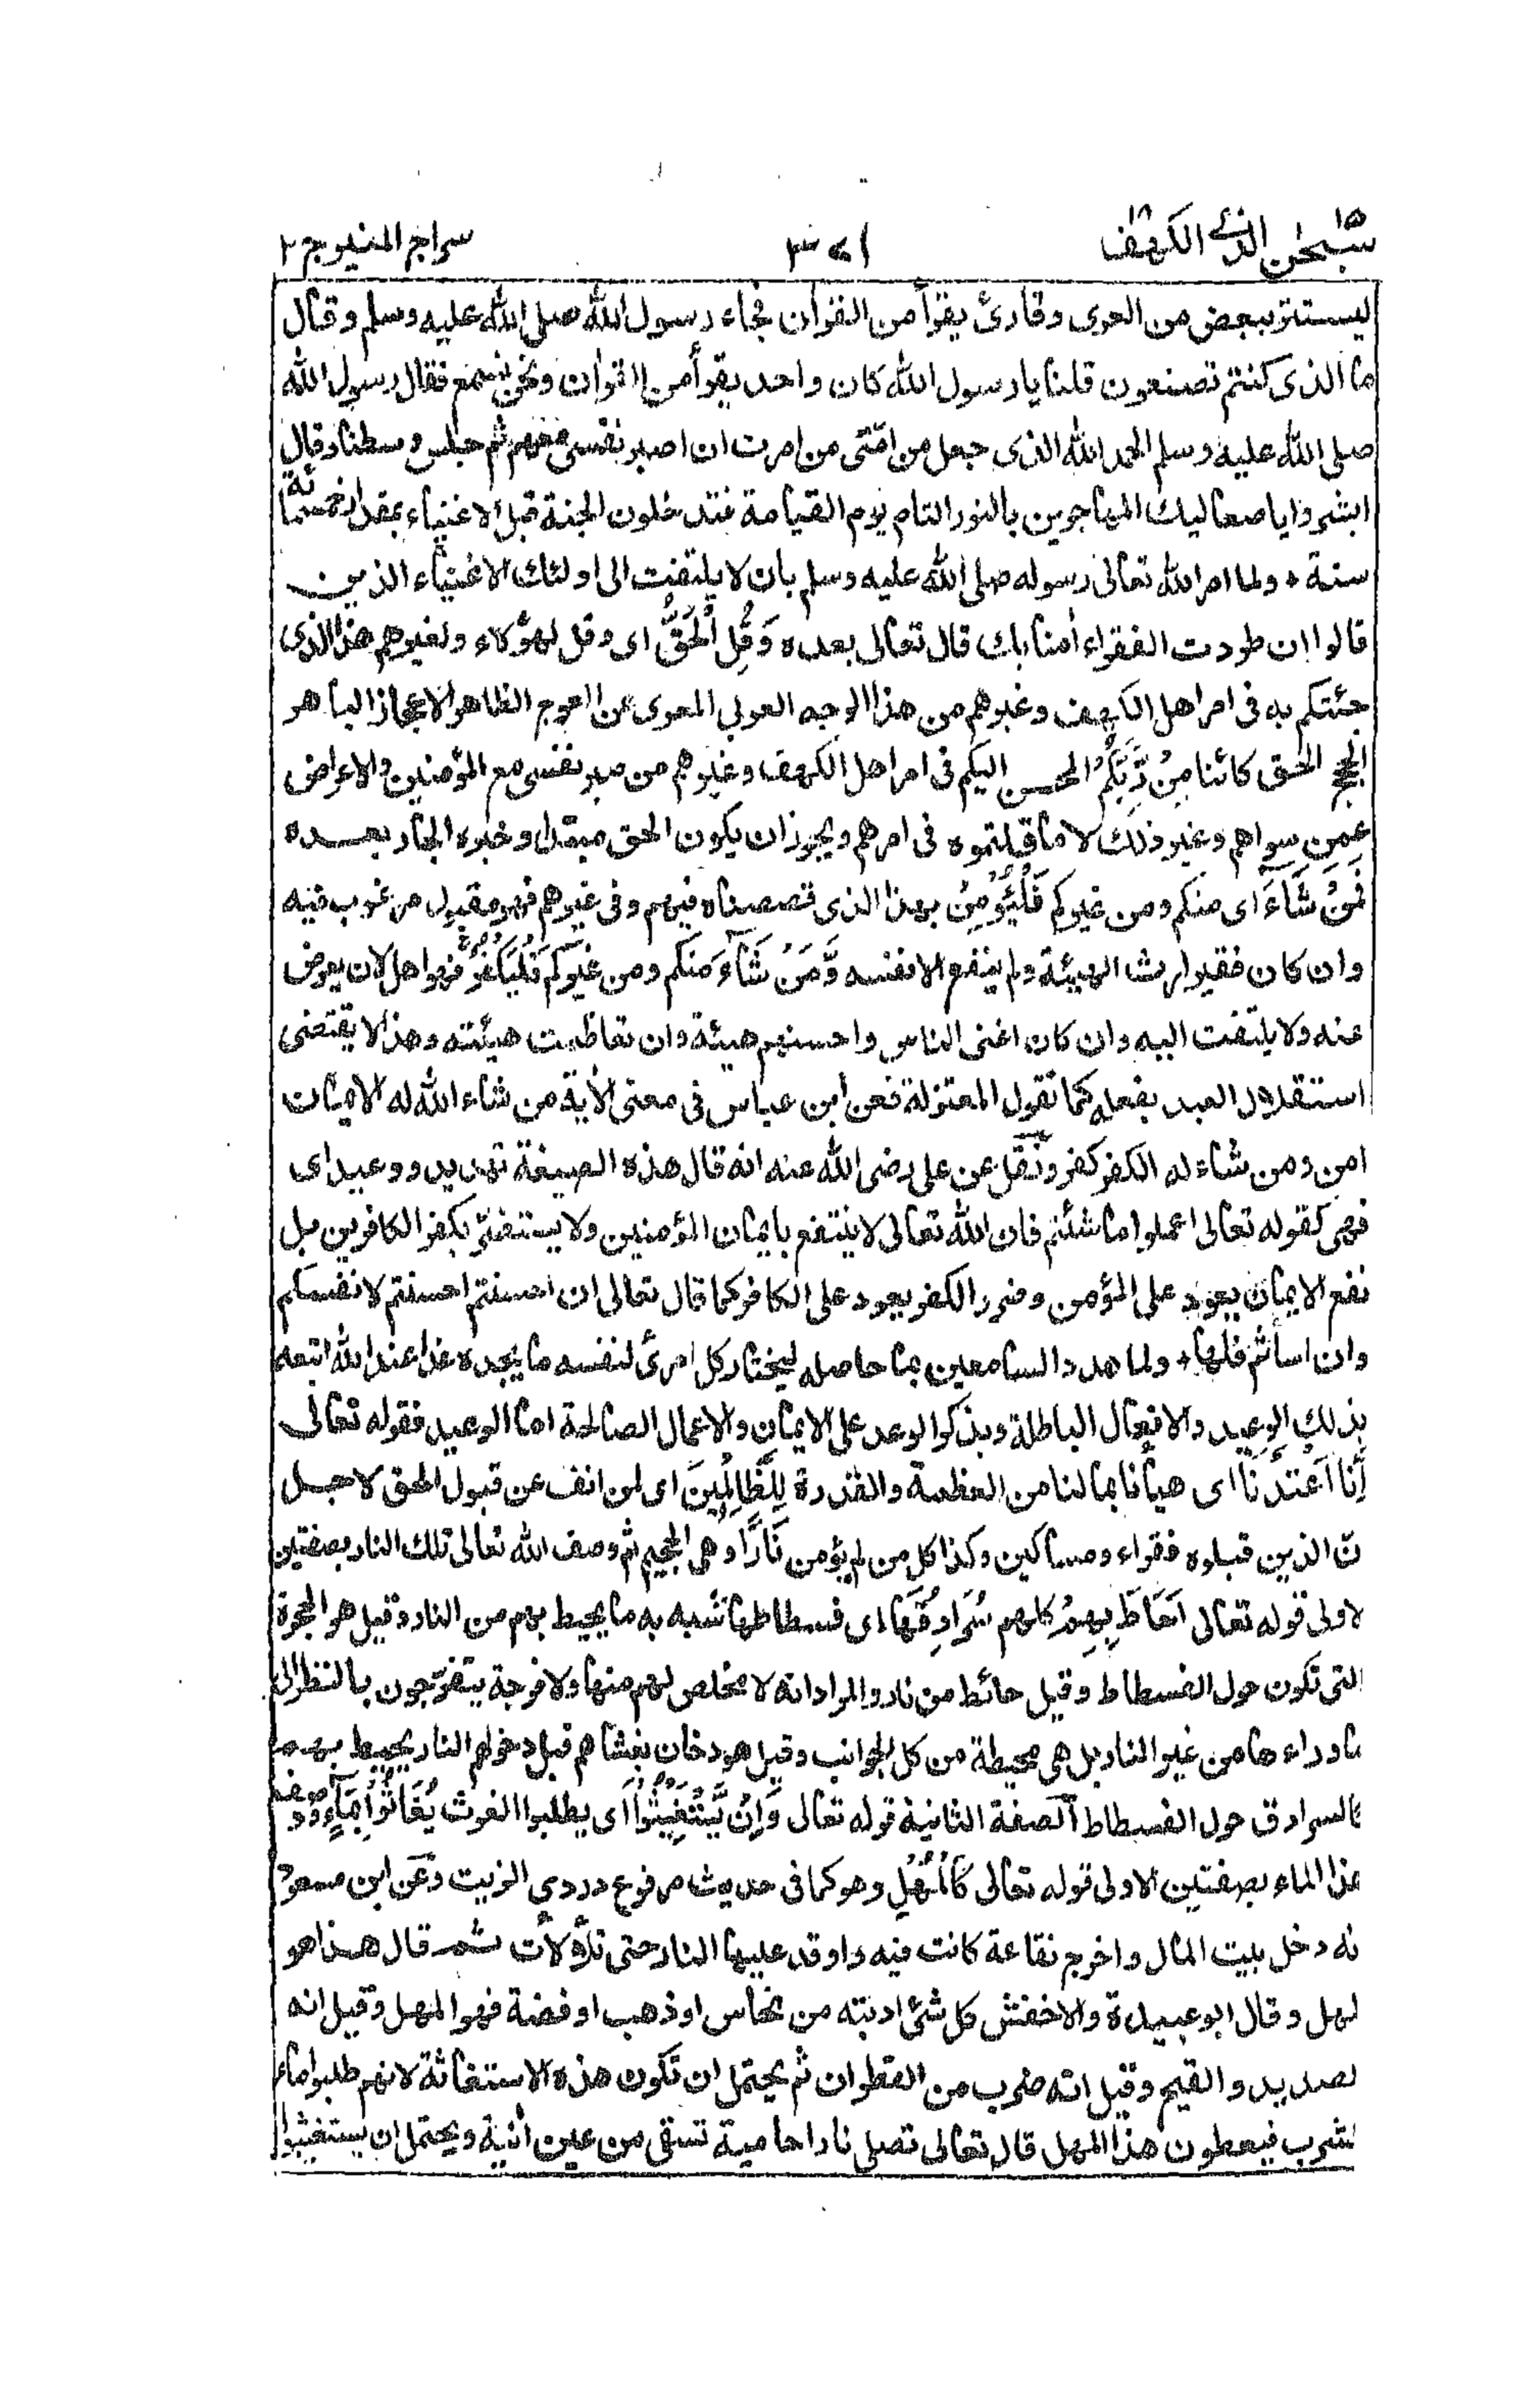 سبحٰن الذی ١٥ الكهف ١٨
٣٧١
سراج المنير ج ٢
ليستتر ببعض من العرى وقارئ يقرأ من القرأن فجاء رسول الله صلى الله عليه وسلم وقال
ما الذى كنتم تصنعون قلنا يا رسول الله كان واحد يقرأ من القرأن ونحن نسمع فقال رسول الله
صلى الله عليه وسلم الحمد لله الذى جعل من امّتى من امرت ان اصبر نفسى معهم ثم جلس وسطنا وقال
ابشروا يا صعاليك المهاجرين بالنور التام يوم القيامة تدخلون الجنة قبل الاغنياء بمقدار خمسمائة
سنة ٭ ولما امر الله تعالى رسوله صلى الله عليه وسلم بان لا يلتفت الى اولئك الاغنياء الذين
قالوا ان طردت الفقراء أمنا بك قال تعالى بعده وَقُلِ الْحَقُّ اى وقل لهؤلاء ولغيرهم هذا الذى
جئتكم به فى امر اهل الكهف وغيرهم من هذا الوجه العربى المعرى عن العوج الظاهر الاعجاز الباهر
الحجج الحق كائنا مِنْ رَّبِّكُمْ المحسن اليكم فى امر اهل الكهف وغيرهم من صبر نفسى مع المؤمنين والاعراض
عمن سواهم وغير ذلك لا ما قلتموه فى امرهم ويجوز ان يكون الحق مبتدا وخبره الجار بعده
فَمَنْ شَآءَ اى منكم ومن غيركم فَلْيُؤْمِنْ بهذا الذى قصصناه فيهم وفى غيرهم فهو مقبول مرغوب فيه
وان كان فقيرا رث الهيئة ولم ينفع الا نفسه وَّمَنْ شَآءَ منكم ومن غيركم فَلْيَكْفُرْ فهو اهل لان يعرض
عنه ولا يلتفت اليه وان كان اغنى الناس واحسنهم هيئة وان تعاظمت هيئته وهذا لا يقتضى
استقلال العبد بفعله كما تقول المعتزلة فعن ابن عباس فى معنى الأية من شاء الله له الايمان
امن ومن شاء له الكفر كفر ونقل عن على رضى الله عنه انه قال هذه الصيغة تهديد ووعيد اى
فهى كقوله تعالى اعملوا ما شئتم فان الله تعالى لا ينتفع بايمان المؤمنين ولا يستضرّ بكفر الكافرين بل
نفع الايمان يعود على المؤمن وضرر الكفر يعود على الكافر كما قال تعالى ان احسنتم احسنتم لانفسكم
وان اسأتم فلها ٭ ولما هدد السامعين بما حاصله ليختار كل امرئ لنفسه ما يجده غدا عند الله اتبعه
بذلك الوعيد والافعال الباطلة وبذكر الوعد على الايمان والاعمال الصالحة اما الوعيد فقوله تعالى
اِنَّا اَعْتَدْنَا اى هيأنا بما لنا من العظمة والقدرة لِلظَّالِمِيْنَ اى لمن انف عن قبول الحق لاجل
نّ الذين قبلوه فقراء ومساكين وكذا كل من لم يؤمن نَارًا وهى الجحيم ثم وصف الله تعالى تلك النار بصفتين
لاولى قوله تعالى اَحَاطَ بِهِمْ كلهم سُرَادِقُهَا اى فسطاطها شبه به ما يحيط بهم من النار وقيل هو الحجرة
التى تكون حول الفسطاط وقيل حائط من نار والمراد انه لا مخلص لهم منها ولا فرجة يتفرّجون بالنظر الى
ما وراءها من غير النار بل هى محيطة من كل الجوانب وقيل هو دخان يغشاهم قبل دخولهم النار يحيط بهم
كالسرادق حول الفسطاط الصفة الثانية قوله تعالى وَاِنْ يَّسْتَغِيْثُوْا اى يطلبوا الغوث يُغَاثُوْا بِمَآءٍ ووصف
هذا الماء بصفتين الاولى قوله تعالى كَالْمُهْلِ وهو كما فى حديث مرفوع دردي الزيت وعن ابن مسعود
نه دخل بيت المال واخرج نقاعة كانت فيه واوقد عليها النار حتى تلألأت ثم قال هذا هو
لمهل وقال ابو عبيدة والاخفش كل شئ اذبته من نحاس او ذهب او فضة فهو المهل وقيل انه
لصديد والقيح وقيل انه ضرب من القطران ثم يحتمل ان تكون هذه الاستغاثة لانهم طلبوا ماء
لشرب فيعطون هذا المهل قال تعالى تصلى نارا حامية تسقى من عين أنية ويحتمل ان يستغيثوا